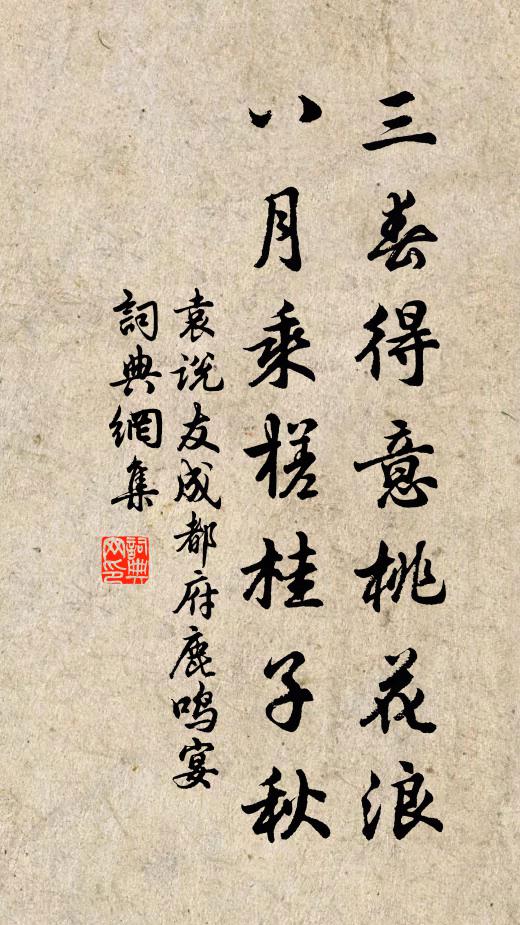 三春得意桃花浪
八月乘槎桂子秋
袁说友成都府鹿鸣宴
詞典網集
詞典网印